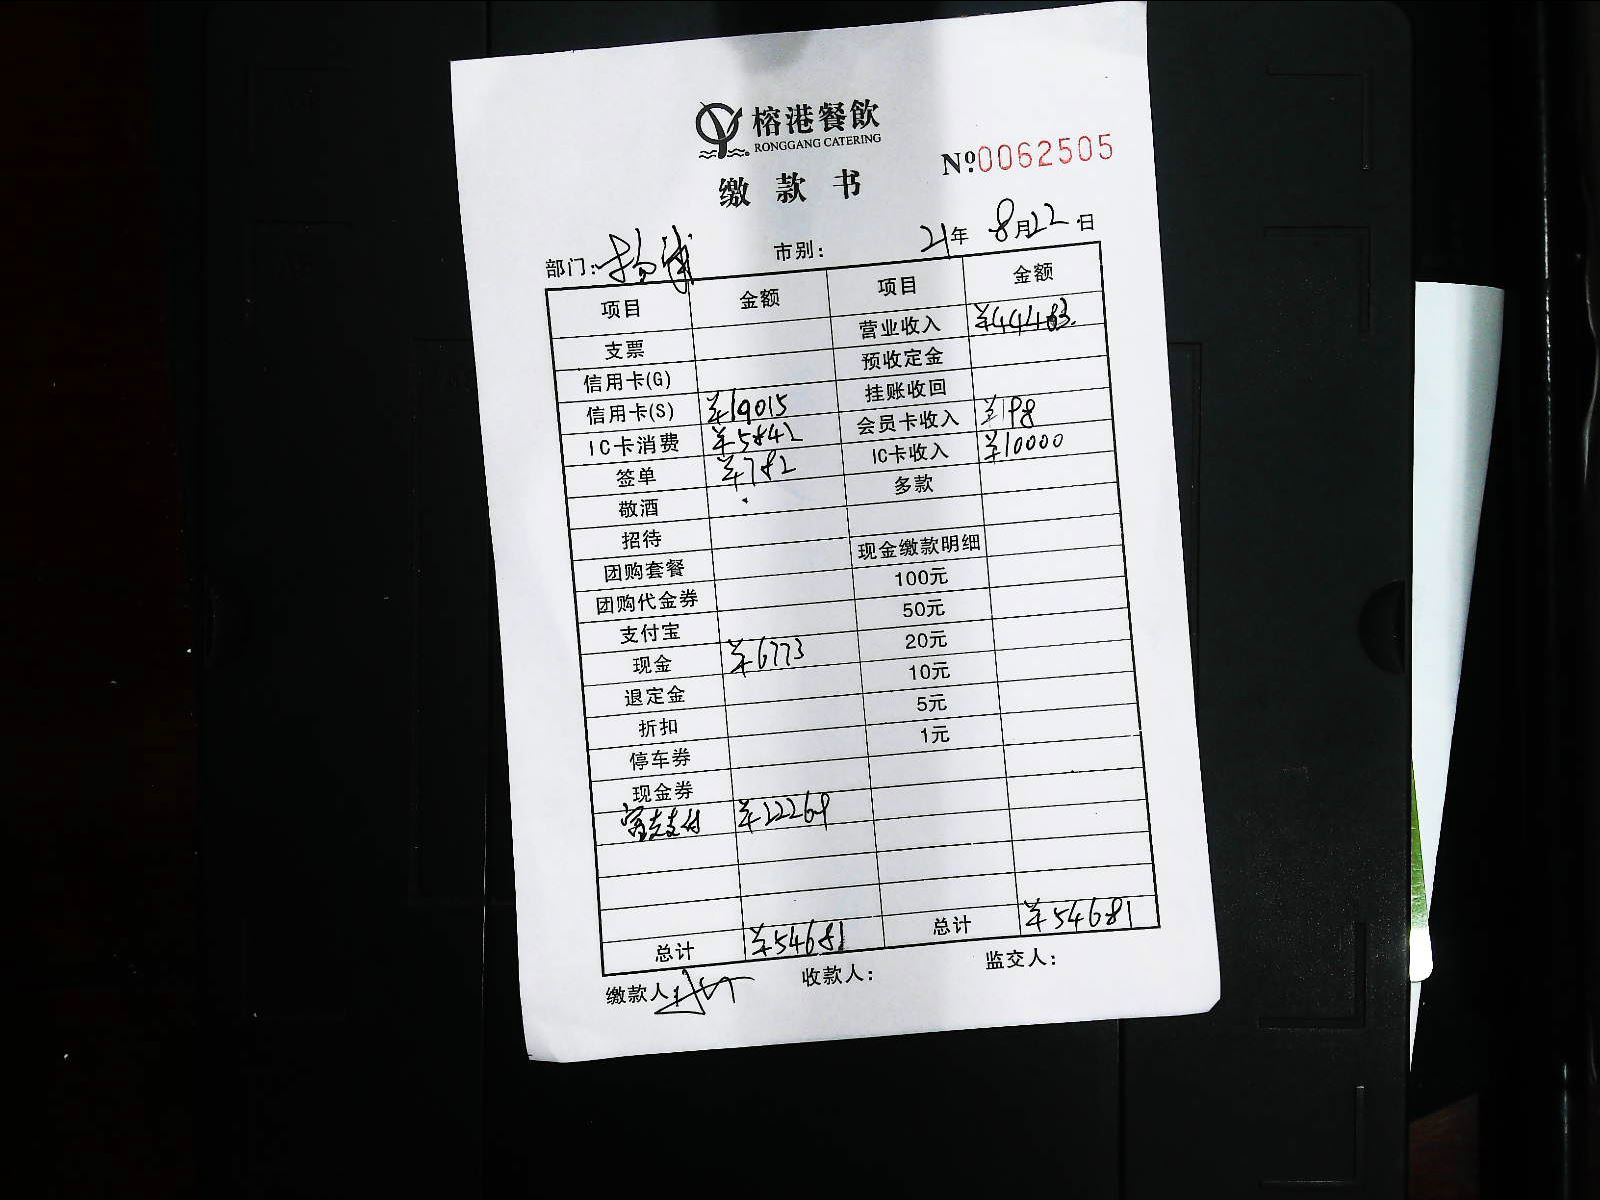 榕港餐飲
RONGGANG CATERING
缴款书 №:0062505
部门: 市别: 21年 8月22日
项目 金额 项目 金额
支票 营业收入 ¥44483.
信用卡(G) 预收定金
信用卡(S) ¥19015 挂账收回
IC卡消费 ¥5842 会员卡收入 ¥198
签单 ¥782 IC卡收入 ¥10000
敬酒 多款
招待
团购套餐 现金缴款明细
团购代金券 100元
支付宝 50元
现金 ¥6773 20元
退定金 10元
折扣 5元
停车券 1元
现金券
支付 ¥22269
总计 ¥54681 总计 ¥54681
缴款人: 收款人: 监交人: